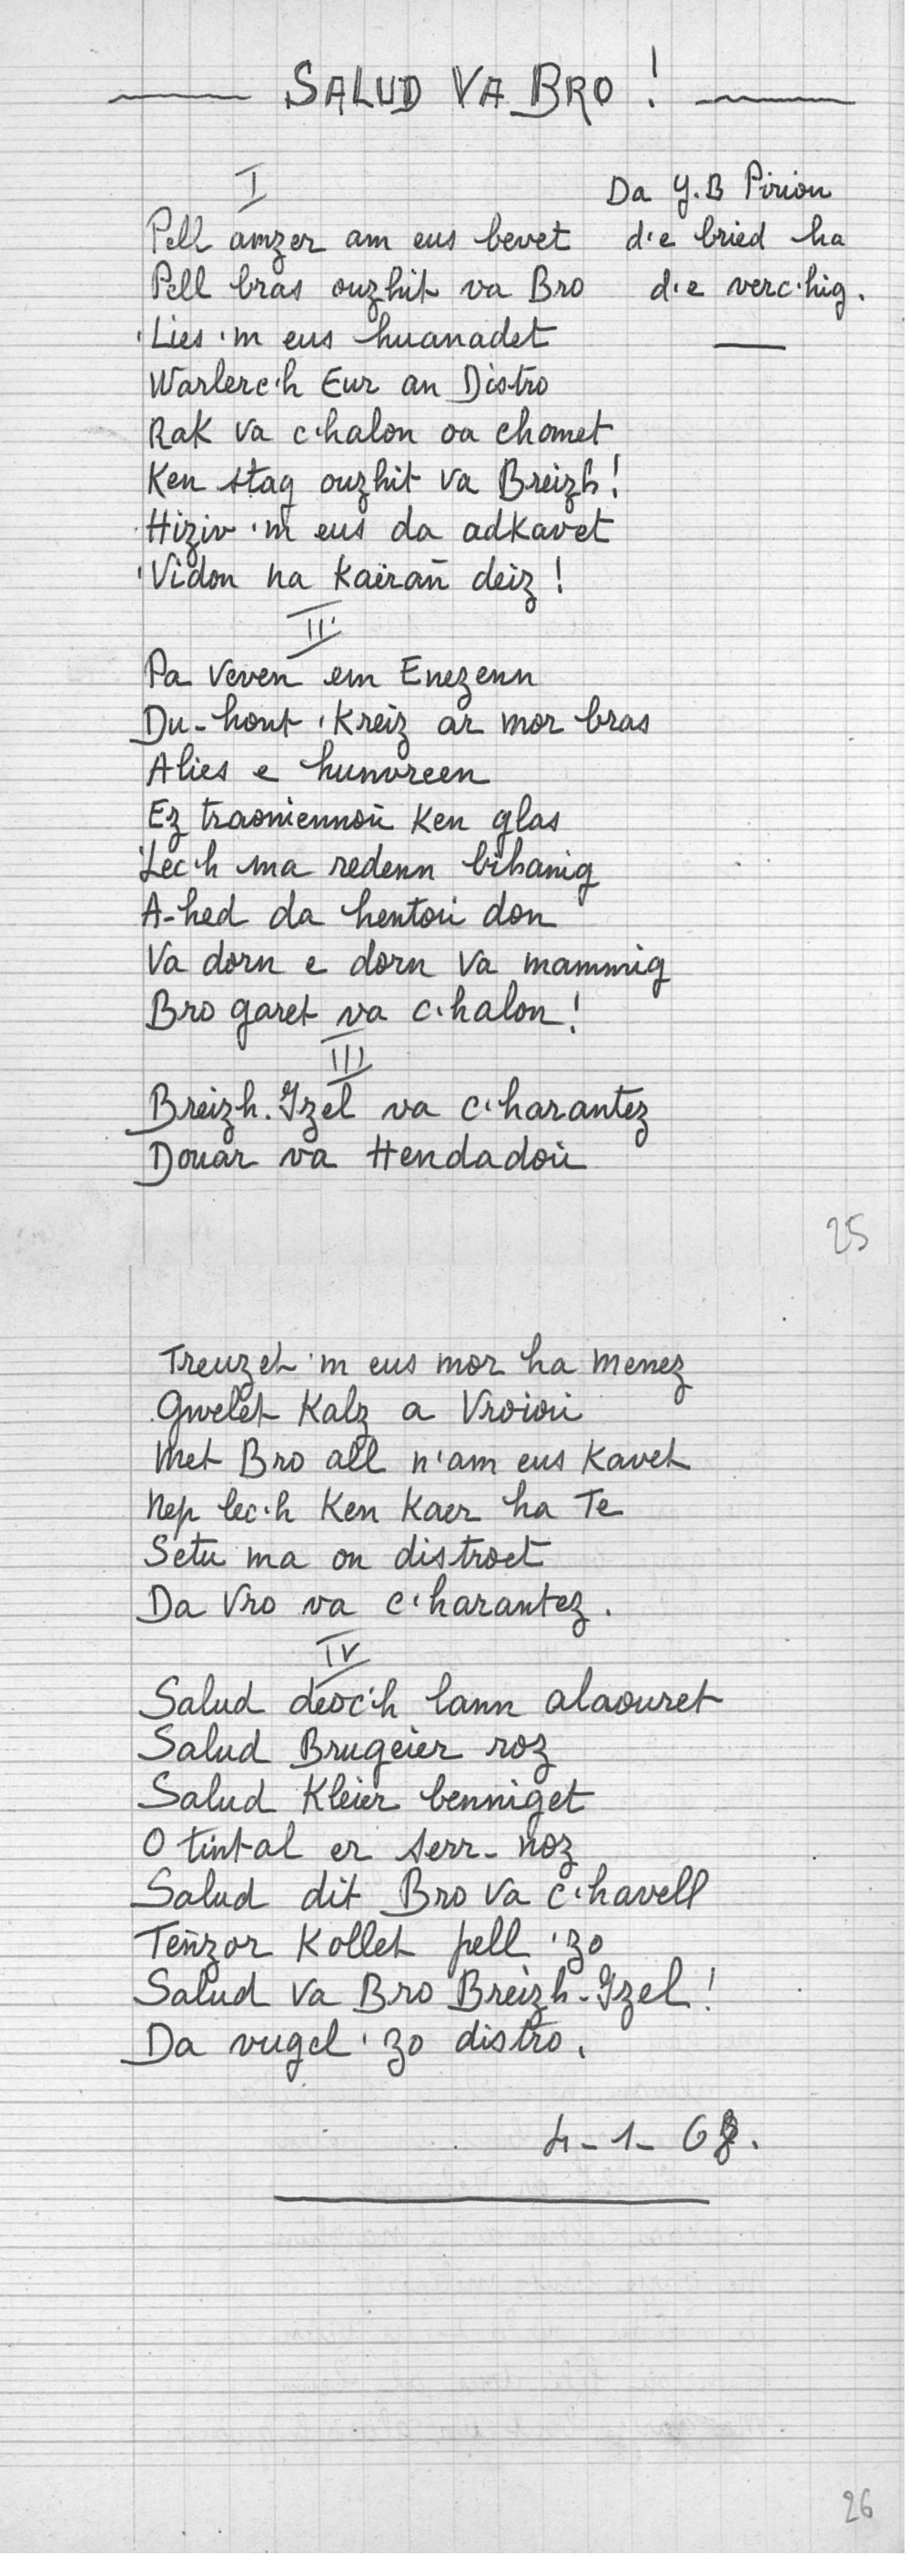 SALUD VA BRO !
I
Da Y.B Pirion
d'e bried ha
d'e verc'hig.
Pell amzer am eus bevet
Pell bras ouzhit va Bro
'Lies 'm eus huanadet
Warlerc'h Eur an Distro
Rak va c'halon oa chomet
Ken stag ouzhit va Breizh !
Hiziv 'm eus da adkavet
'Vidon na kaërañ deiz !
II
Pa veven em Enezenn
Du-hont 'Kreiz ar mor bras
Alies e hunvreen
Ez traoniennoù Ken glas
'Lec'h ma redenn bihanig
A-hed da hentoù don
Va dorn e dorn va mammig
Bro garet va c'halon !
III
Breizh-Izel va c'harantez
Douar va Hendadoù
25
Treuzet 'm eus mor ha menez
Gwelet Kalz a Vroioù
Met Bro all n'am eus Kavet
Nep lec'h Ken Kaer ha Te
Setu ma on distroet
Da Vro va c'harantez.
IV
Salud deoc'h lann alaouret
Salud Brugeier roz
Salud Kleier benniget
O tintal er serr-noz
Salud dit Bro va c'havell
Teñzor Kollet pell 'zo
Salud va Bro Breizh-Izel !
Da vugel 'zo distro.
4-1-6
26